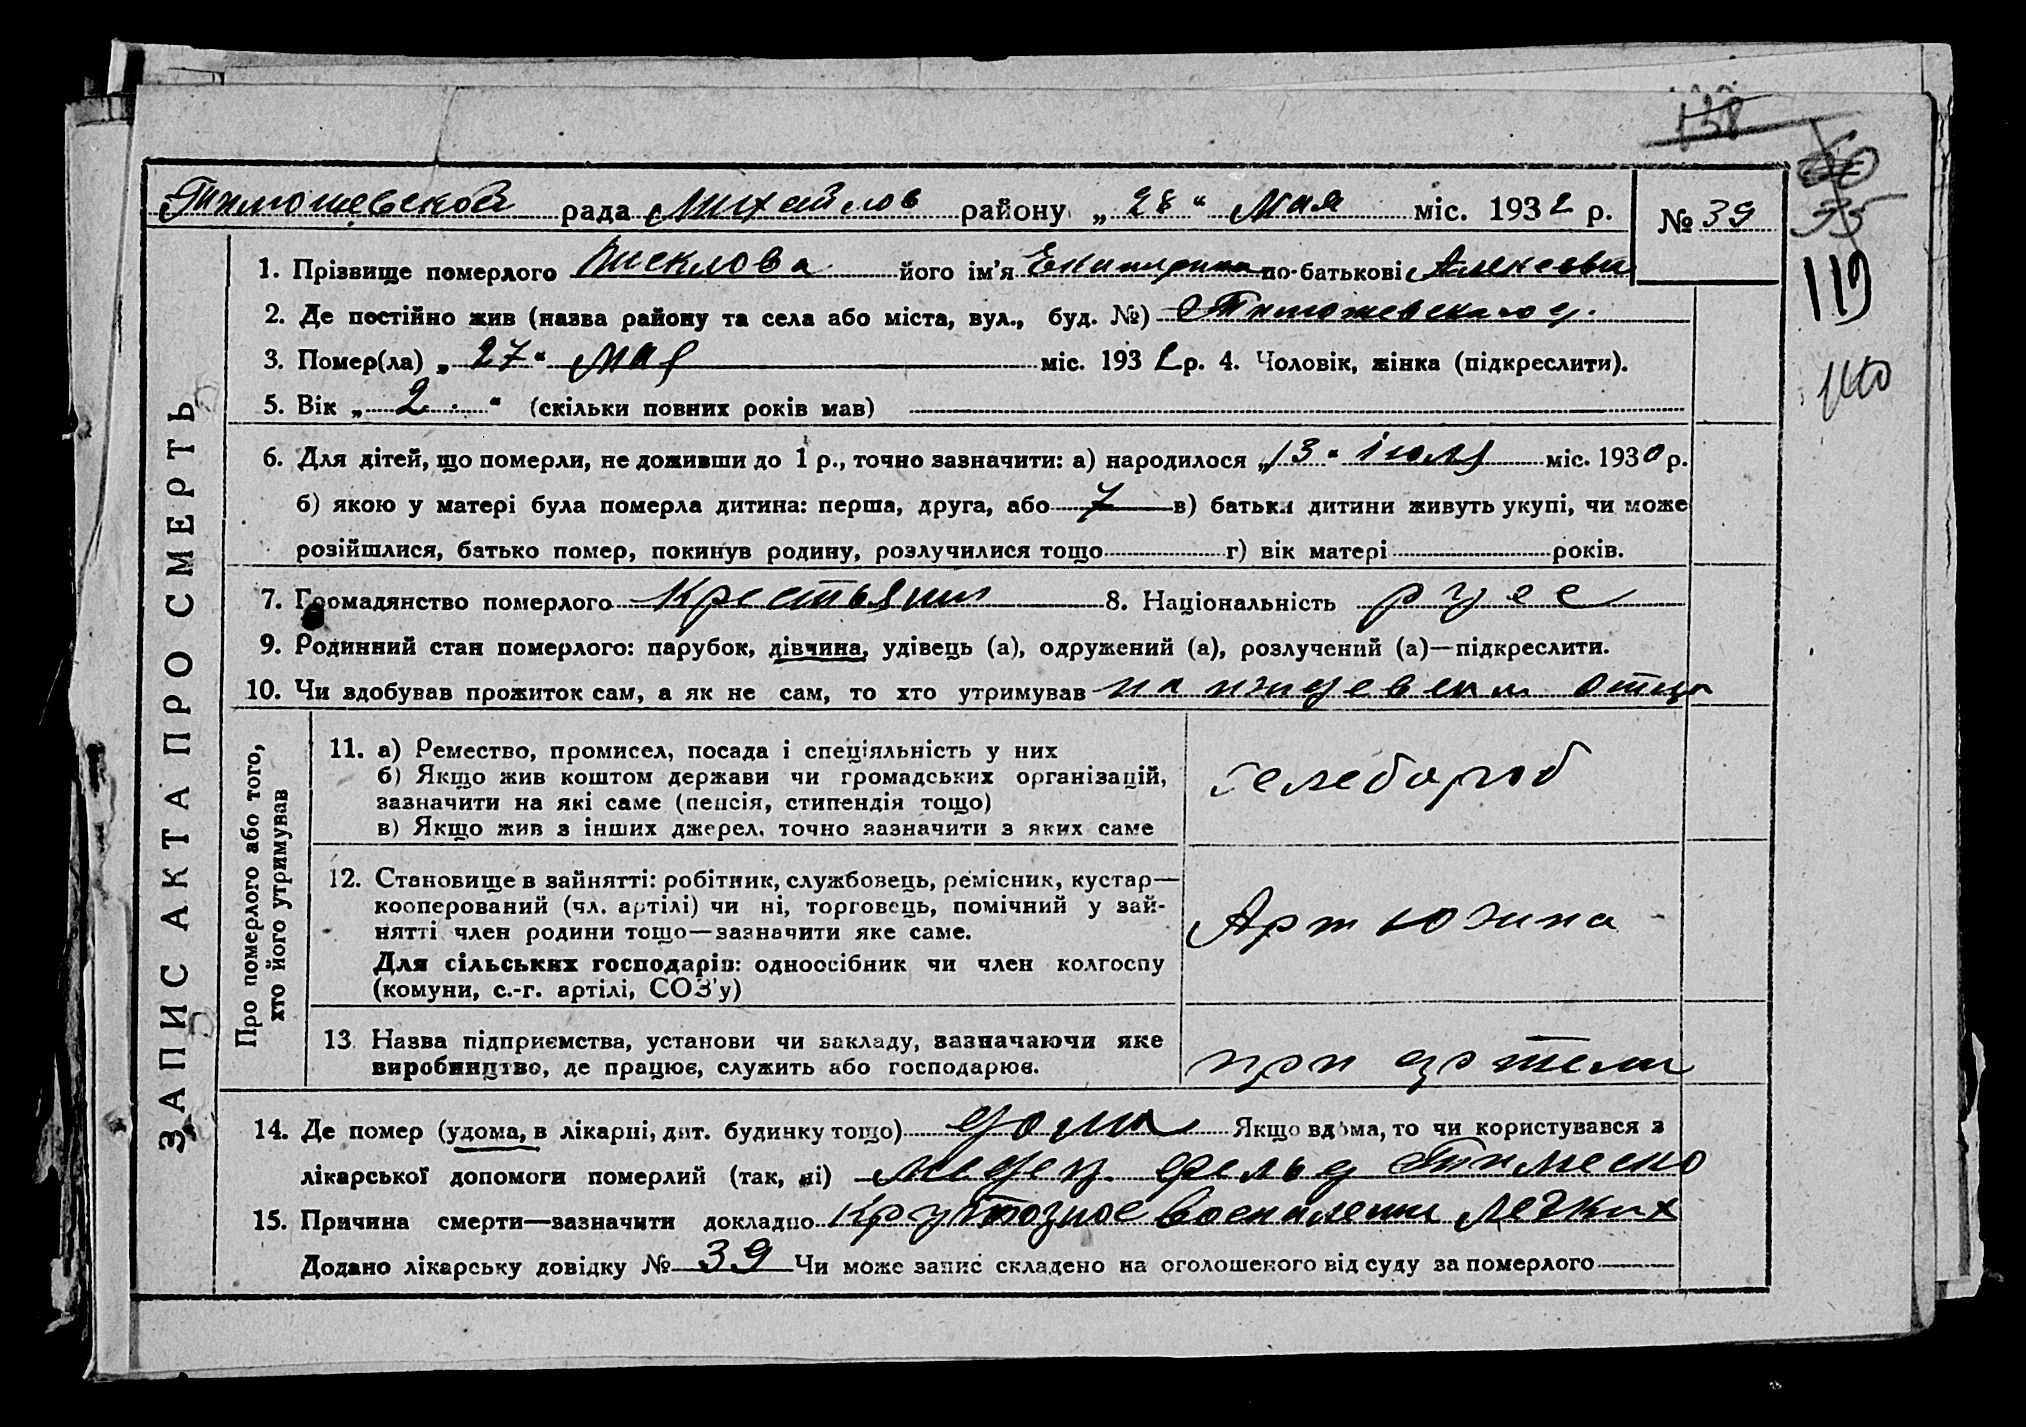 138
60
55
119
110
Тимошевской рада Михайлов району „28“ Мая міс. 1932 р. № 39
ЗАПИС АКТА ПРО СМЕРТЬ
1. Прізвище померлого його ім'я Екатерина по-батькові Алексеевн
2. Де постійно жив (назва району та села або міста, вул., буд. №) с Тимошевского
3. Помер(ла) „27“ мая міс. 1932 р. 4. Чоловік, жінка (підкреслити).
5. Вік „2“ (скільки повних років мав)
6. Для дітей, що померли, не доживши до 1 р., точно зазначити: а) народилося „13“ июля міс. 1930 р.
б) якою у матері була померла дитина: перша, друга, або 7 в) батьки дитини живуть укупі, чи може
розійшлися, батько помер, покинув родину, розлучилися тощо г) вік матері років.
7. Громадянство померлого крестьянин 8. Національність русс
9. Родинний стан померлого: парубок, дівчина, удівець (а), одружений (а), розлучений (а)—підкреслити.
10. Чи здобував прожиток сам, а як не сам, то хто утримував на иждевении отца
Про померлого або того,
хто його утримував
11. а) Ремество, промисел, посада і спеціяльність у них
б) Якщо жив коштом держави чи громадських організацій,
зазначити на які саме (пенсія, стипендія тощо)
в) Якщо жив з інших джерел, точно зазначити з яких саме
хлебороб
12. Становище в зайнятті: робітник, службовець, ремісник, кустар—
кооперований (чл. артілі) чи ні, торговець, помічний у зай-
нятті член родини тощо—зазначити яке саме.
Для сільських господарів: одноосібник чи член колгоспу
(комуни, с.-г. артілі, СОЗ'у)
13. Назва підприємства, установи чи закладу, зазначаючи яке
виробництво, де працює, служить або господарює.
при артели
14. Де помер (удома, в лікарні, дит. будинку тощо) дома Якщо вдома, то чи користувався з
лікарської допомоги померлий (так, ні) фельд
15. Причина смерти—зазначити докладно Крупозное воспаление легких
Додано лікарську довідку № 39 Чи може запис складено на оголошеного від суду за померлого